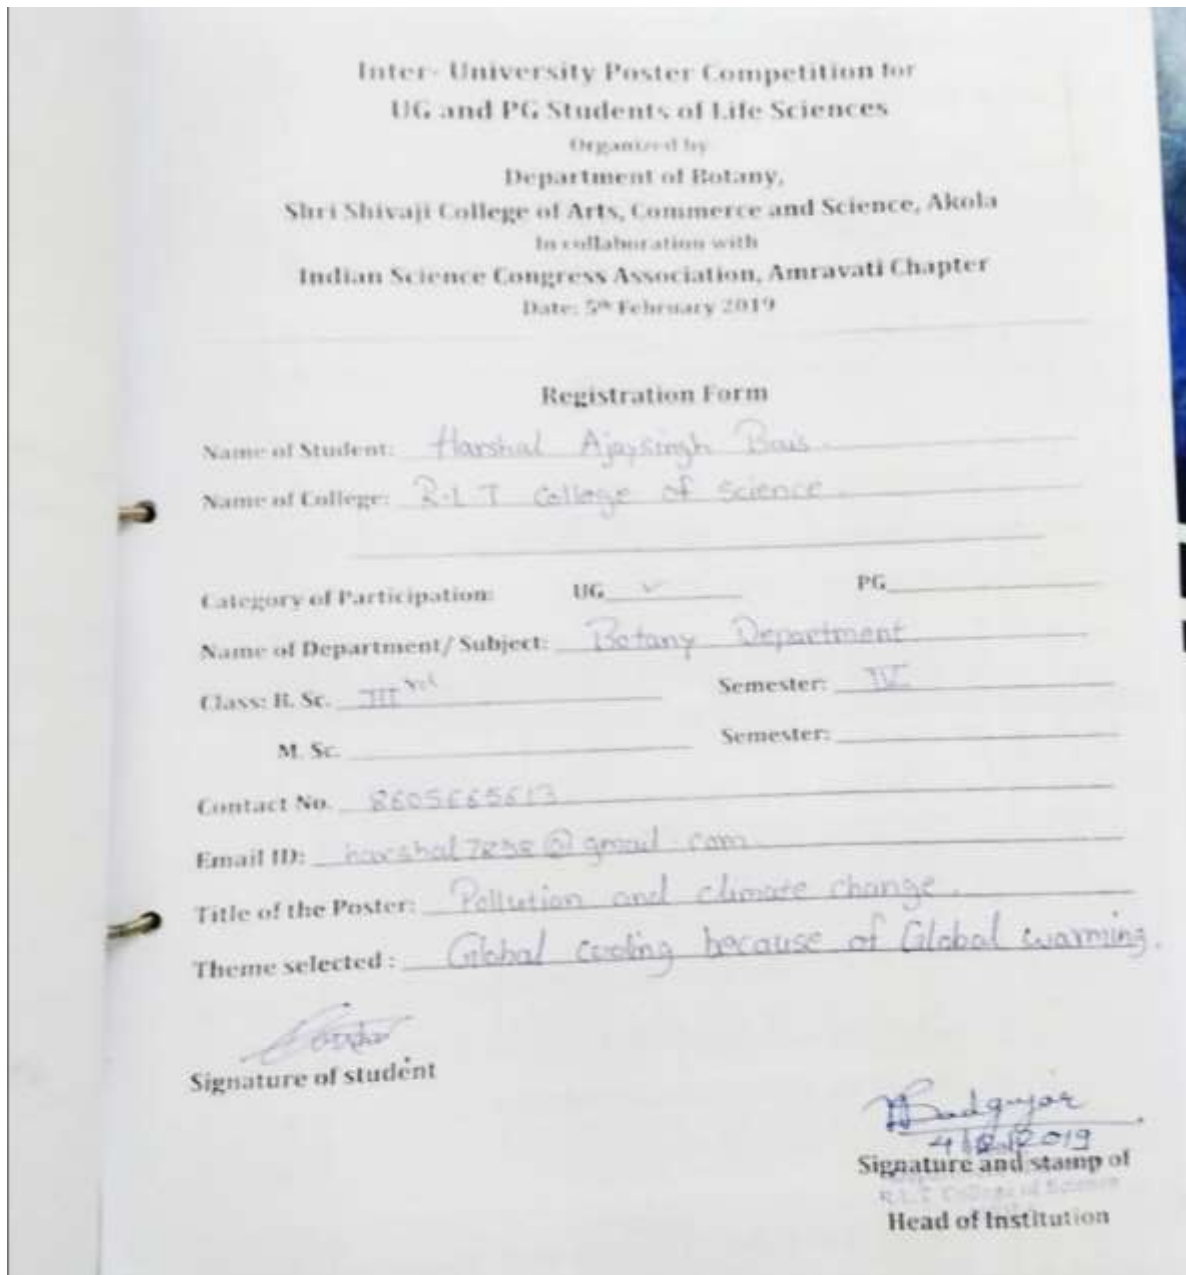 Inter- University Poster Competition for
UG and PG Students of Life Sciences
Organized by
Department of Botany,
Shri Shivaji College of Arts, Commerce and Science, Akola
In collaboration with
Indian Science Congress Association, Amravati Chapter
Date: 5th February 2019
Registration Form
Name of Student: Harshal Ajaysingh Bais.
Name of College: R.L.T College of science.
Category of Participation: UG ✓ PG
Name of Department/ Subject: Botany Department
Class: B. Sc. IIIrd Semester: IV
M. Sc. Semester:
Contact No. 8605665613
Email ID: @gmail.com
Title of the Poster: Pollution and climate change.
Theme selected : Global cooling because of Global warming.
Signature of student
Badgujar
4/2/2019
Signature and stamp of
R.L.T College of Science
Head of Institution